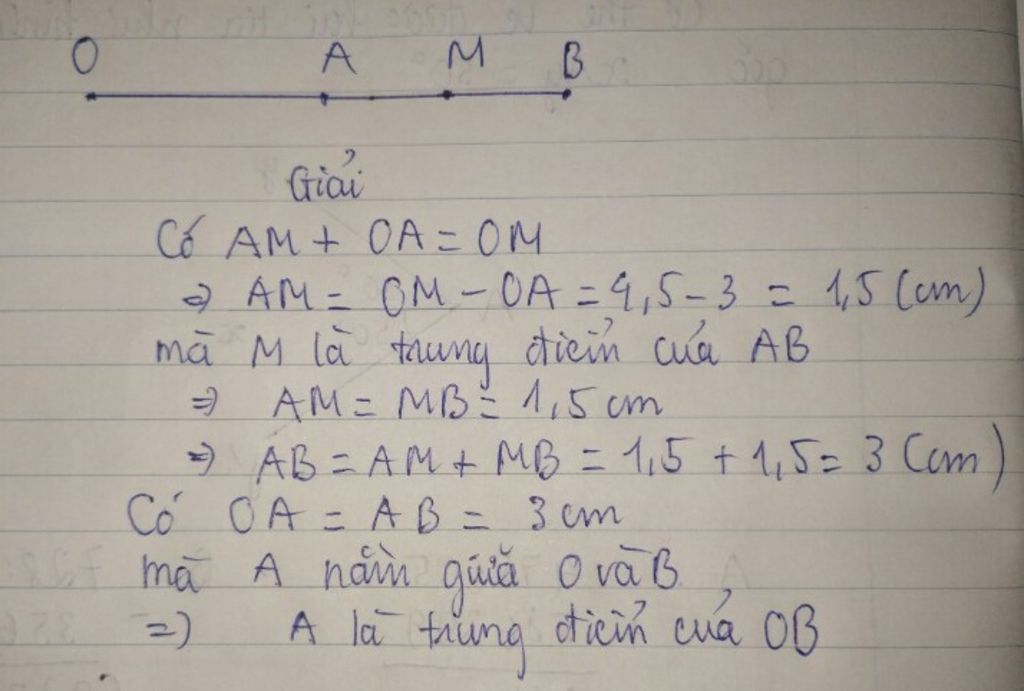 O A M B
Giải
Có AM + OA = OM
⇒ AM = OM - OA = 4,5 - 3 = 1,5 (cm)
mà M là trung điểm của AB
⇒ AM = MB = 1,5 cm
⇒ AB = AM + MB = 1,5 + 1,5 = 3 (cm)
Có OA = AB = 3 cm
mà A nằm giữa O và B
=) A là trung điểm của OB